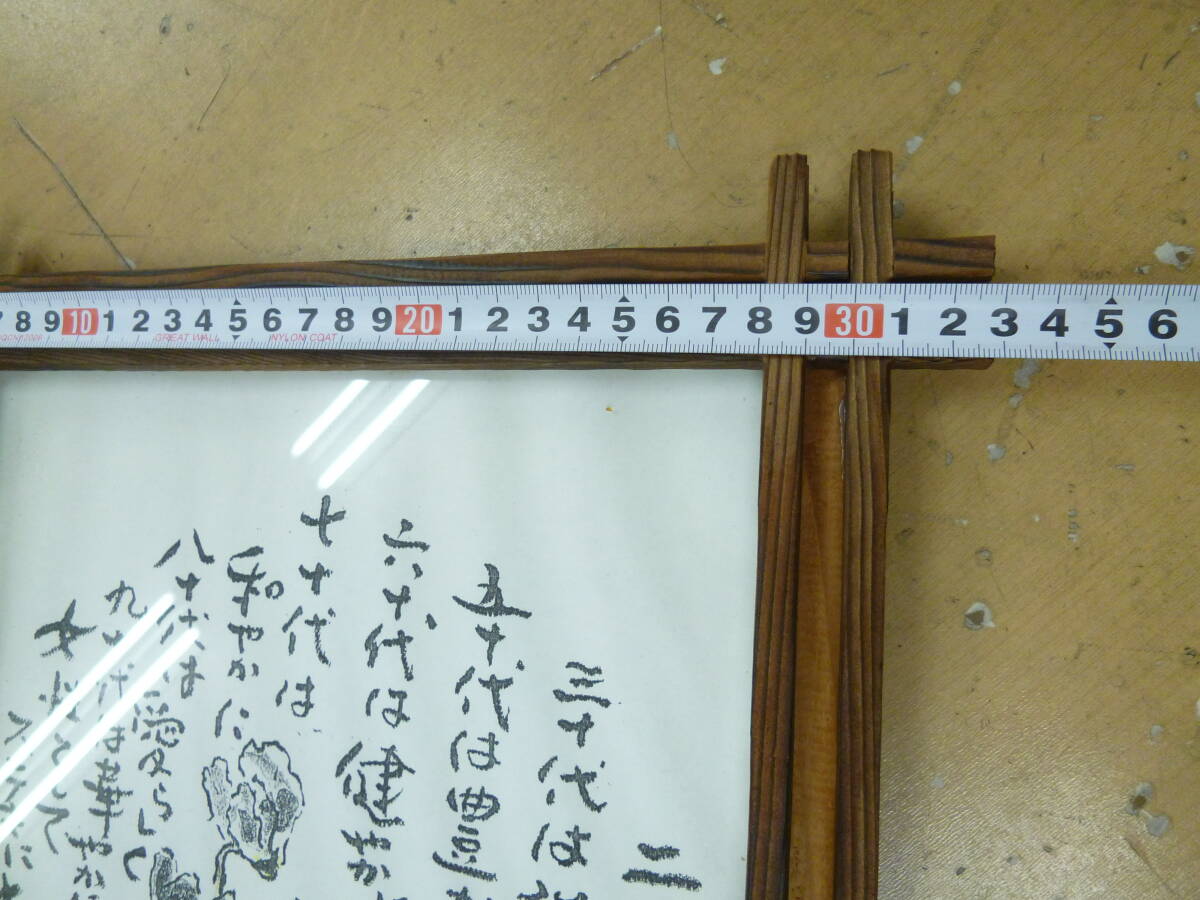 7 8 9 10 1 2 3 4 5 6 7 8 9 20 1 2 3 4 5 6 7 8 9 30 1 2 3 4 5 6
GREAT WALL NYLON COAT
二
三十代は
五十代は豊
六十代は健やか
七十代は
和やかに
八十代は
愛らしく
九十代は華やか
女性として